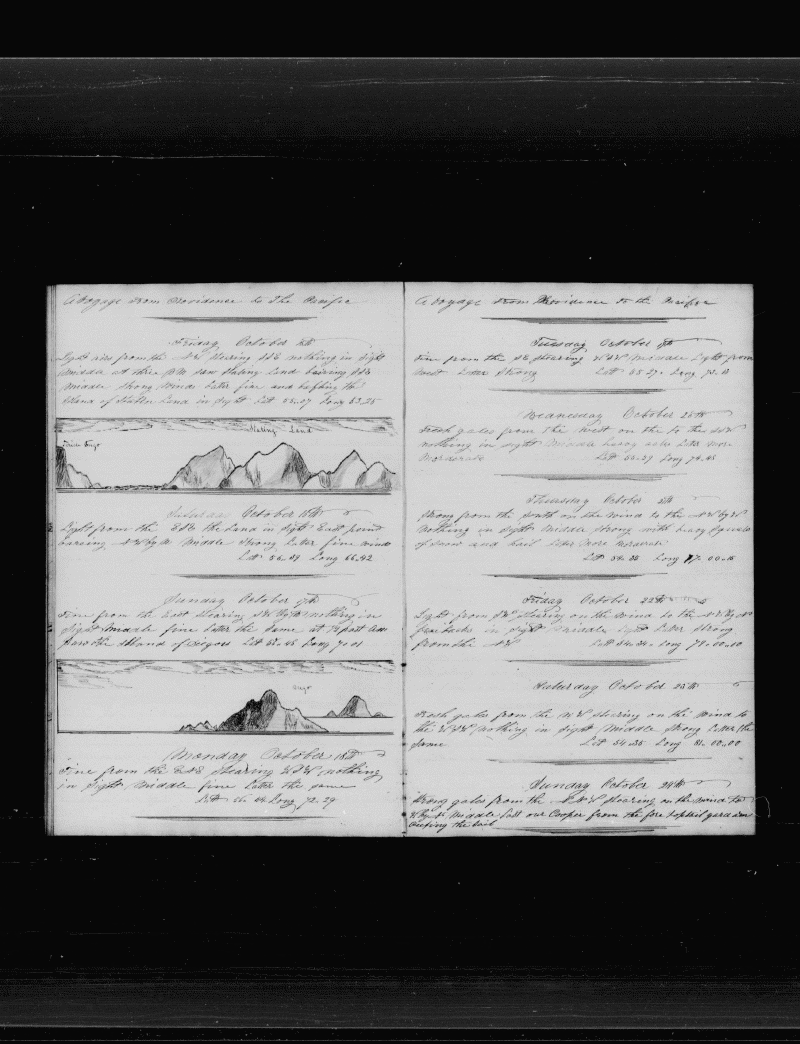 A voyage from Providence to the Pacific
Friday October 15th
Light airs from the NE steering SSE nothing in sight
Middle at three PM saw Staten Land bearing SSE
Middle strong winds Later fine and
Island of Staten Land in sight Lat 55-07 Long 63,25
Staten Land
Saturday October 16th
Light from the ESE the Land in sight East point
bearing NW by N Middle strong Later fine winds
Lat 56-09 Long 66-42
Sunday October 17th
Fine from the East steering SW by W nothing in
sight Middle fine Later the same at ½ past
the Island of Diegos Lat 56-45 Long 70-01
Diego
Monday October 18th
Fine from the ESE steering WSW nothing
in sight Middle fine Later the same
Lat 56-44 Long 72-29
A voyage from Providence to the Pacific
Tuesday October 19th
Fine from the SE steering WSW Middle Light from
West Later strong Lat 55-27 Long 73-13
Wednesday October 20th
Fresh gales from the West on the to the SSW
nothing in sight Middle heavy Later more
Moderate Lat 55-29 Long 74-45
Thursday October 21th
Strong from the South on the wind to the NW by W
nothing in sight Middle strong with heavy squalls
of snow and hail Later more Moderate
Lat 54-26 Long 77-00-15
Friday October 22th
Light from SW steering on the wind to the NW by N
in sight Middle Light Later strong
from the NW Lat 54-34 Long 79-00-00
Saturday October 23th
Fresh gales from the NW steering on the wind to
the WSW nothing in sight Middle strong Later the
same Lat 54-35 Long 81-00-00
Sunday October 24th
Strong gales from the NNW steering on the wind to
W by N Middle lost our Cooper from the fore topsail yard arm
the sail